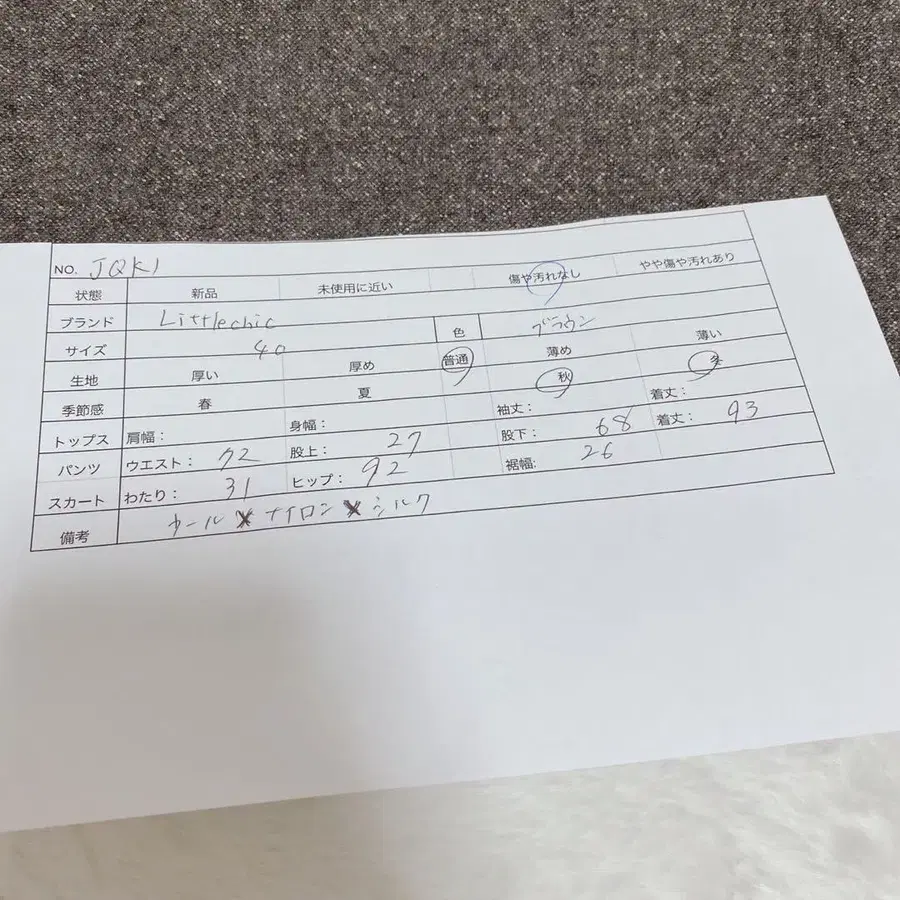 NO. JQK1
状態 新品 未使用に近い 傷や汚れなし やや傷や汚れあり
ブランド Littlechic
サイズ 40 色 ブラウン
生地 厚い 厚め 普通 薄め 薄い
季節感 春 夏 秋 冬
トップス 肩幅： 身幅： 袖丈： 着丈：
パンツ ウエスト： 72 股上： 27 股下： 68 着丈： 93
スカート わたり： 31 ヒップ： 92 裾幅: 26
備考 ウール×ナイロン×シルク